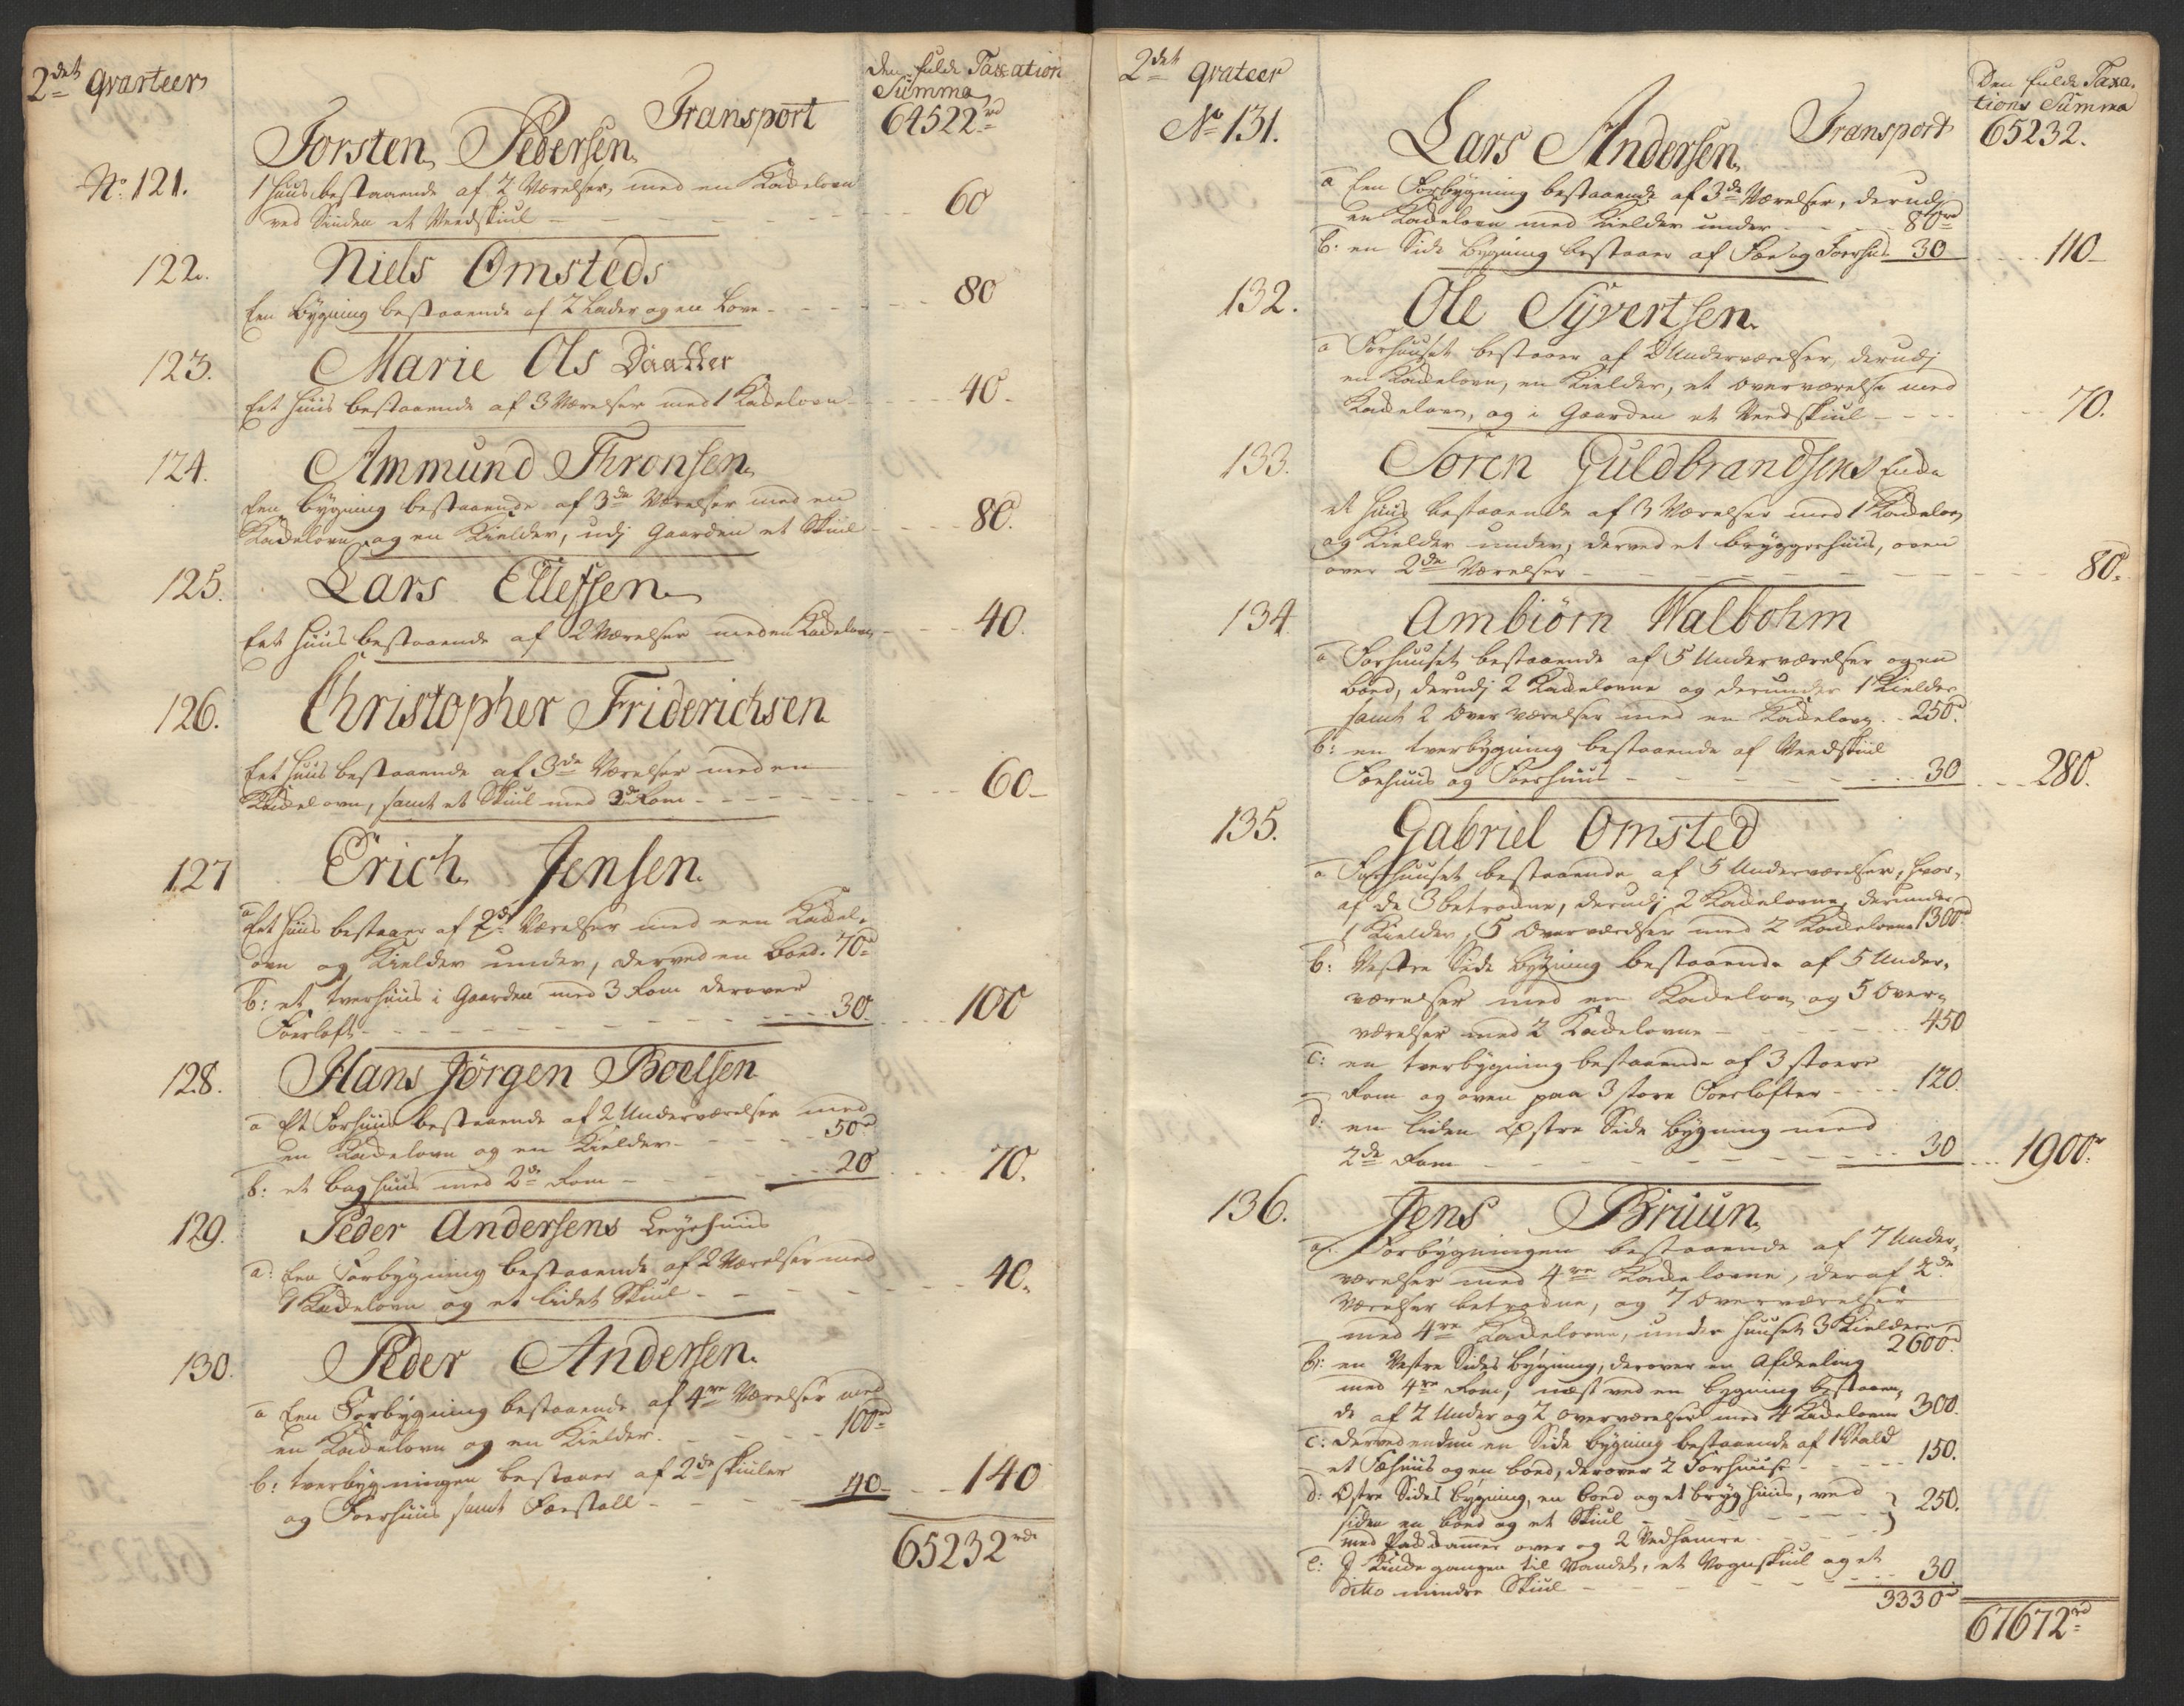 2det Qvarteer
Den fulde Taxation
Summa
Transport 64522rd
Torsten Pedersen
No 121. 1 Huus bestaaende af 2 Værelser, med en Kackelovn
ved Siiden et Veedskiul - - - 60
122. Niels Omsteds
Een Bÿgning bestaaende af 2 Lader og en Love - - - 80
123. Marie Ols Daatter
Eet Huus bestaaende af 3 Værelser med 1 Kackelovn - - 40-
124. Ammund Thronsen
Een Bygning bestaaende af 3de Værelser med en
Kackelovn og en Kielder, udj Gaarden et Skiul - - - 80.
125. Lars Ellefsen
Eet Huus bestaaende af 2 Værelser med en Kackelovn - - 40.
126. Christopher Friderichsen
Eet Huus bestaaende af 3de Værelser med en
Kackelovn, samt et Skiul med 3de Rom - - - 60-
127 Erich Jensen
a Eet Huus bestaaer af 2de Værelser med een Kackel-
ovn og Kielder under, derved en Boed. 70rd
b: et Tverhuus i Gaarden med 3 Rom derover
Foerloft - - - 30 - - 100
128. Hans Jørgen Boelsen
a Et Forhuus bestaaende af 2 Underværelser med
en Kackelovn og en Kielder - - - 50rd
b: et Baghuus med 2de Rom - - - 20 - - 70.
129. Peder Andersens Leyehuus
a: Een Forbygning bestaaende af 2 Værelser med
1 Kackelovn og et lidet Skiul - - - 40.
130. Peder Andersen
a Een Forbygning bestaaende af 4re Værelser med
en Kackelovn og en Kielder - - - 100rd
b: Tverbygningen bestaaer af 2de Skiuler
og Foerhuus samt Færstall - - - 40 - - 140
65232rd
2det Qvateer
Den fulde Taxa-
tions Summa
Transport 65232.
No 131. Lars Andersen
a Een Forbygning bestaaende af 3de Værelser, derudj
en Kackelovn med Kielder under - - 80rd
b: en Side bygning bestaaer af Fæe og Foerhuus 30 - - 110-
132. Ole Syvertsen
a Forhuuset bestaaer af 2 Underværelser, derudj
en Kackelovn, en Kielder, et Overværelse med
Kackelovn, og i Gaarden et Veedskiul - - - 70.
133. Søren Guldbrandsens Enke
et Huus bestaaende af 3 Værelser med 1 Kackelovn
og Kielder under, derved et Bryggerhuus, oven
over 2de Værelser - - - 80.
134. Ambiørn Walbohm
a Forhuuset bestaaende af 5 Underværelser og en
Boed, derudj 2 Kackelovne og derunder 1 Kielder
samt 2 Over Værelser med en Kackelovn - 250rd
b: en Tverbygning bestaaende af Veedskiul
Foehuus og Foerhuus - - - 30 - - 280.
135. Gabriel Omsted
a Forhuuset bestaaende af 5 Underværelser, hvor-
af de 3 betrocne, derudj 2 Kackelovne, derunder
1 Kielder, 5 Overværelser med 2 Kackelovne 1300rd
b: Vestre Side bygning bestaaende af 5 Under-
værelser med en Kackelovn og 5 Over-
værelser med 2 Kackelovne - - - 450
c: en Tverbygning bestaaende af 3 stoere
Rom og oven paa 3 store Foerlofter - - - 120.
d: en liden Østre Side bygning med
2de Rom - - - 30 - - 1900rd
136. Jens Bruun
a. Forbygningen bestaaende af 7 Under-
værelser med 4re Kackelovne, deraf 2de
Værelser betrocne, og 7 Overværelser
med 4re Kackelovne, under Huuset 3 Kieldere
2600rd
b: en Vestre Sides bygning, derover en Afdeeling
med 4re Rom, næst ved en bygning bestaaen-
de af 2 Under og 2 Overværelser med 4 Kackelovne 300.
c: derved endnu en Side bygning bestaaende af 1 Stald
et Fæhuus og en Boed, derover 2 Forhuuse - - - 150.
d: Østre Sides bygning, en Boed og et bryghuus, ved
siden en Boed og et Skiul - - - 250.
med over og 2
e: gangen til Vandet, et Vognskiul og et
ditto mindre Skiul - - - 30
3330rd
67672rd